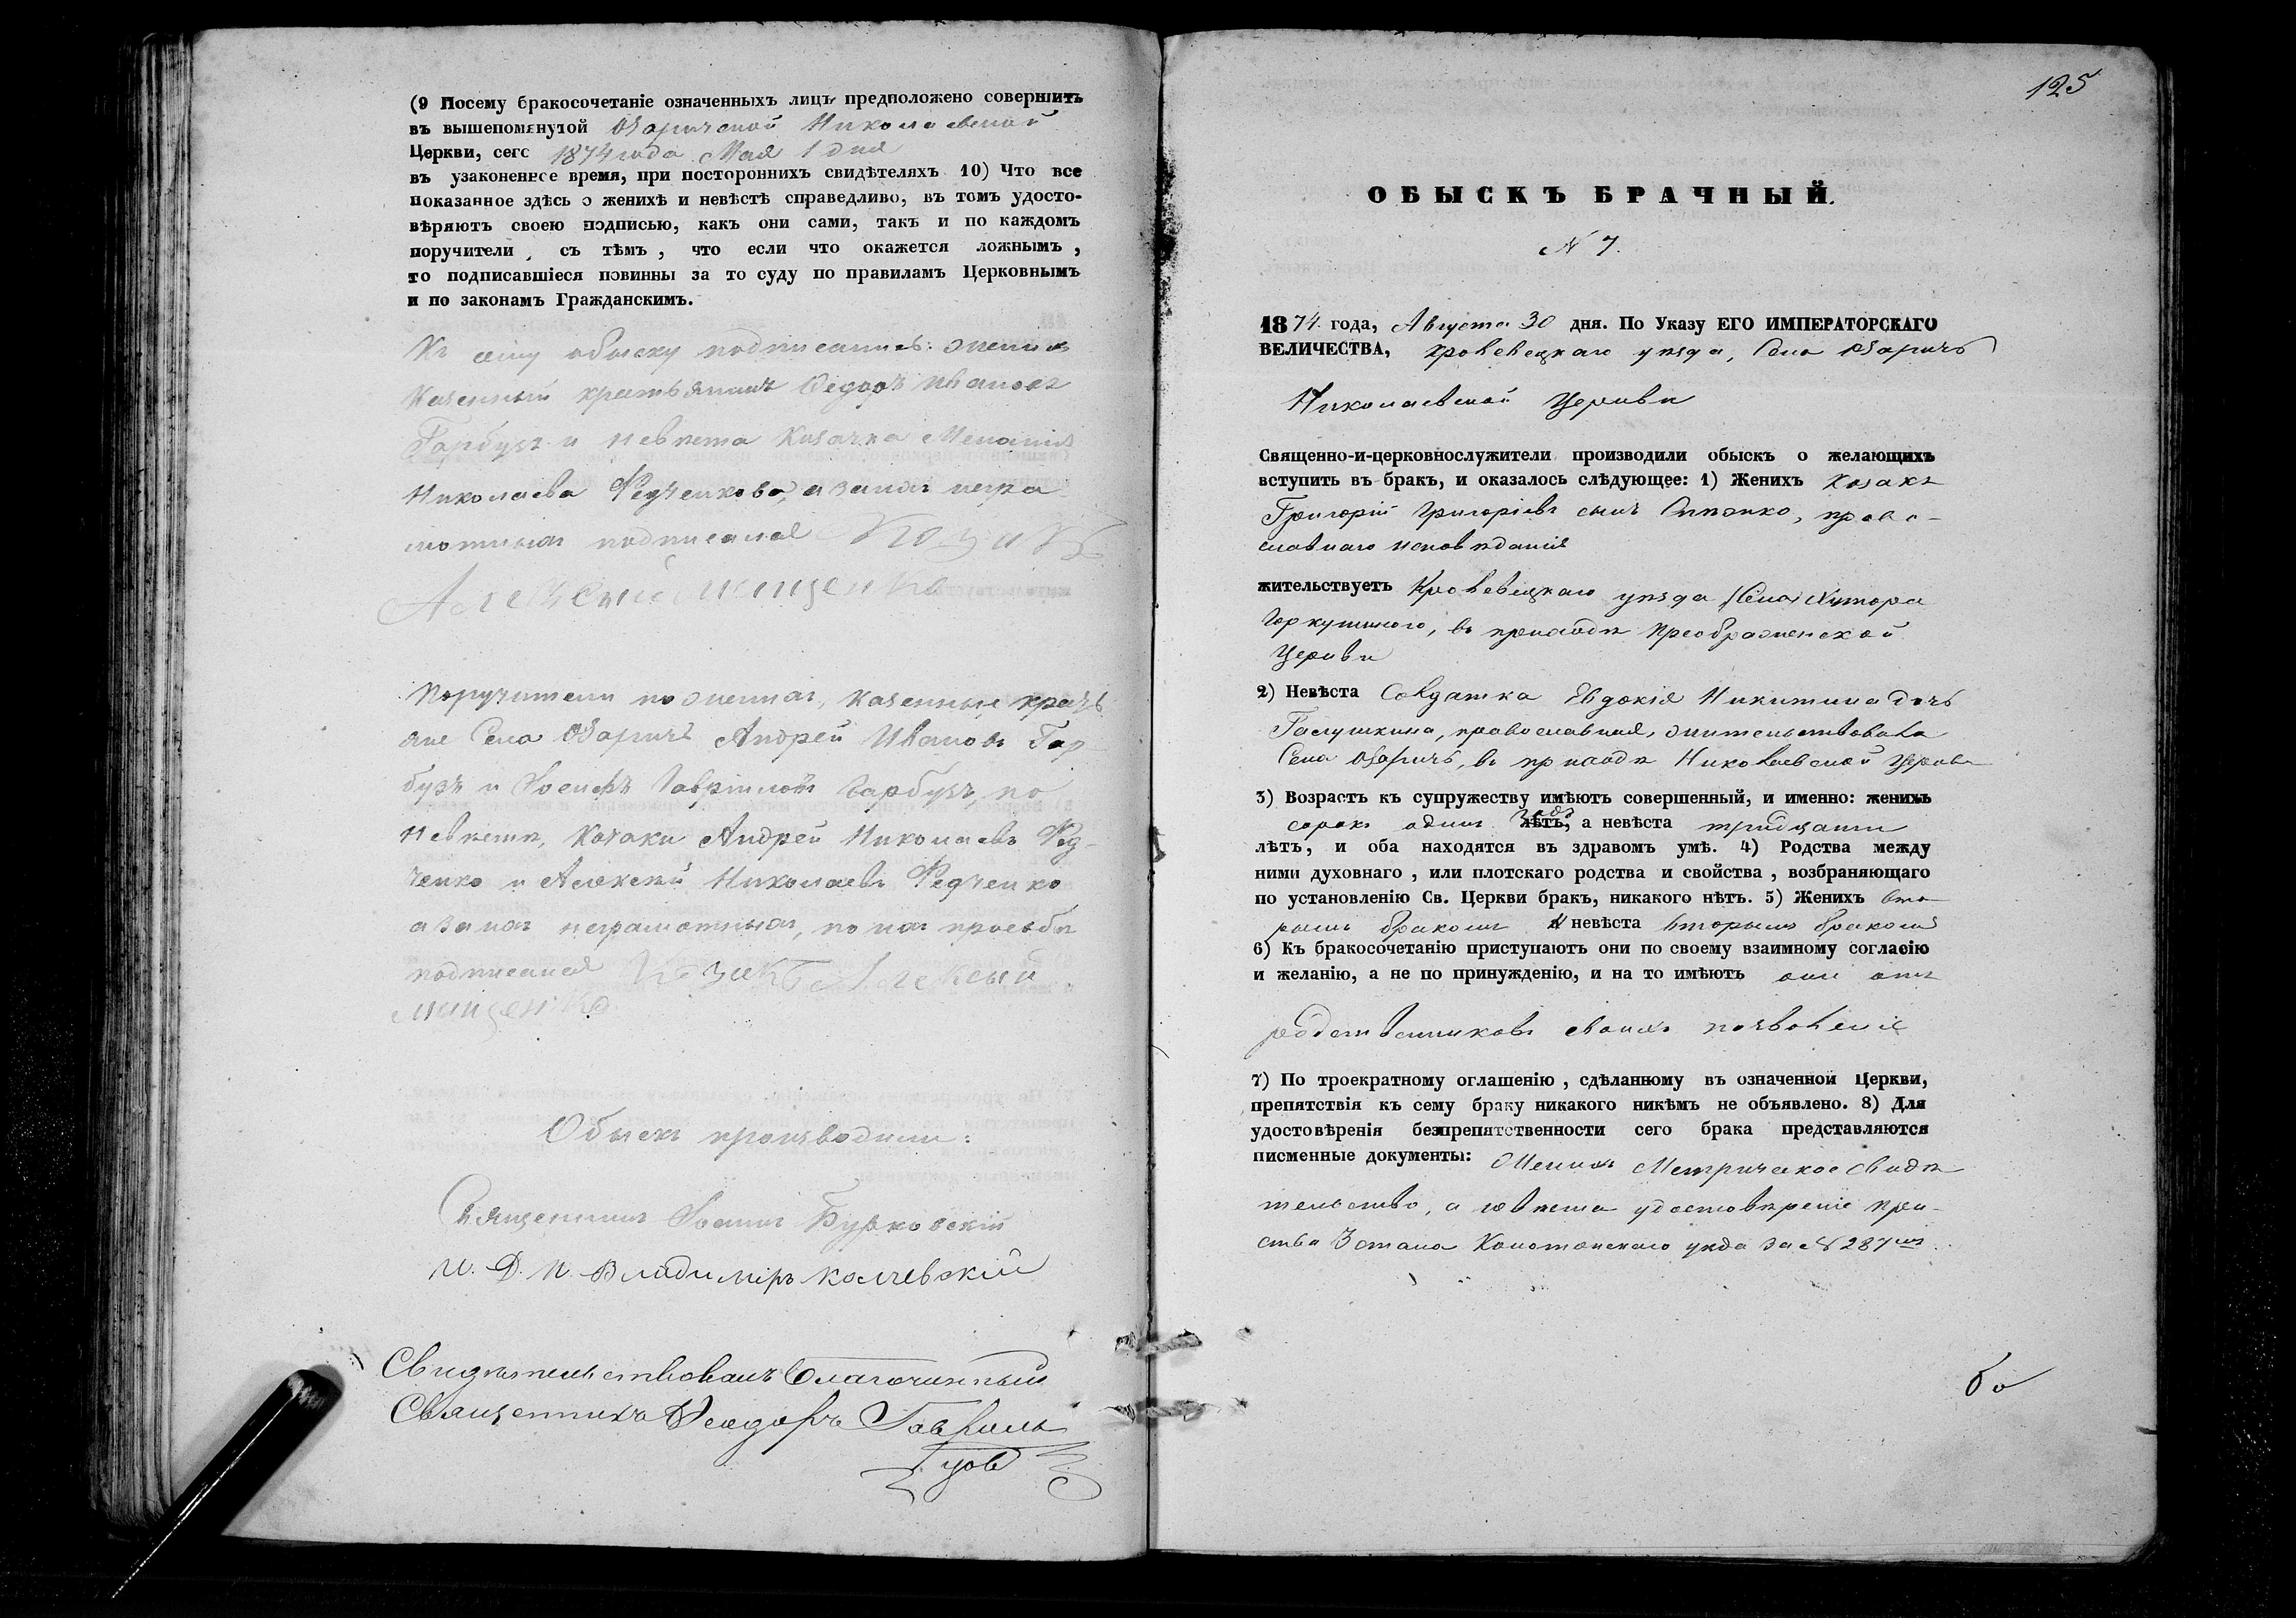 (9 Посему бракосочетаніе означенныхъ лицъ предположено совершить
въ вышепомянутой Озаричской Николаевской
Церкви, сего 1874 года Мая 1 дня
въ узаконенное время, при постороннихъ свидѣтеляхъ 10) Что все
показанное здѣсь о женихѣ и невѣстѣ справедливо, въ томъ удосто-
вѣряютъ своею подписью, какъ они сами, такъ и по каждомъ
поручители, съ тѣмъ, что если что окажется ложнымъ,
то подписавшіеся повинны за то суду по правиламъ Церковнымъ
и по законамъ Гражданскимъ.
Къ сему обыску подписались: женихъ
Казенный крестьянинъ Ѳедоръ Ивановъ
Гарбузъ и невѣста Казачка Меланія
Николаева Федченкова, а за нихъ негра
мотныхъ подписался Козакъ
Алексей Мищенко
Поручители по женихѣ, казенные крестья
не Села Озаричъ Андрей Ивановъ Гар-
бузъ и Іосифъ Гавріиловъ Гарбузъ, по
невѣстѣ, Козаки Андрей Николаевъ Фед-
ченко и Алексѣй Николаевъ Федченко
а за нихъ неграмотныхъ, по ихъ просьбѣ
подписался Козакъ Алексый
Мищенко
Обыскъ производили:
Священникъ Іоаннъ Бурковскій
И. Д. П. Владимиръ
Свидѣтельствовалъ Благочинный
Священникъ Ѳеодоръ Гаврилъ
цовъ
125
ОБЫСКЪ БРАЧНЫЙ.
N 7.
1874 года, Августа 30 дня. По Указу ЕГО ИМПЕРАТОРСКАГО
ВЕЛИЧЕСТВА, Кролевецкаго уѣзда, Села Озаричъ
Николаевской Церкви
Священно-и-церковнослужители производили обыскъ о желающихъ
вступить въ бракъ, и оказалось слѣдующее: 1) Женихъ Козакъ
Григорій Григоріевъ сынъ право-
славнаго исповѣданія
жительствуетъ Кролевецкаго уѣзда Хутора
въ приходѣ Преображенской
Церкви
2) Невѣста Солдатка Евдокія Никитина дочь
Галушкина, православная, жительствовала
Села Озаричъ, въ приходѣ Николаевской Церкви
3) Возрастъ къ супружеству имѣютъ совершенный, и именно: женихъ
сорокъ одинъ годъ лѣтъ, а невѣста тридцати
лѣтъ, и оба находятся въ здравомъ умѣ. 4) Родства между
ними духовнаго, или плотскаго родства и свойства, возбраняющаго
по установленію Св. Церкви бракъ, никакого нѣтъ. 5) Женихъ вто-
рымъ бракомъ и невѣста вторымъ бракомъ
6) Къ бракосочетанію приступаютъ они по своему взаимному согласію
и желанію, а не по принужденію, и на то имѣютъ они отъ
родственниковъ своихъ позволеніе
7) По троекратному оглашенію, сдѣланному въ означенной Церкви,
препятствія къ сему браку никакого никѣмъ не объявлено. 8) Для
удостовѣренія безпрепятственности сего брака представляются
писменные документы: Женихъ Метрическое свидѣ
тельство, а невѣста удостовѣреніе при-
става 3 стана Конотопскаго уѣзда за N 287
бо